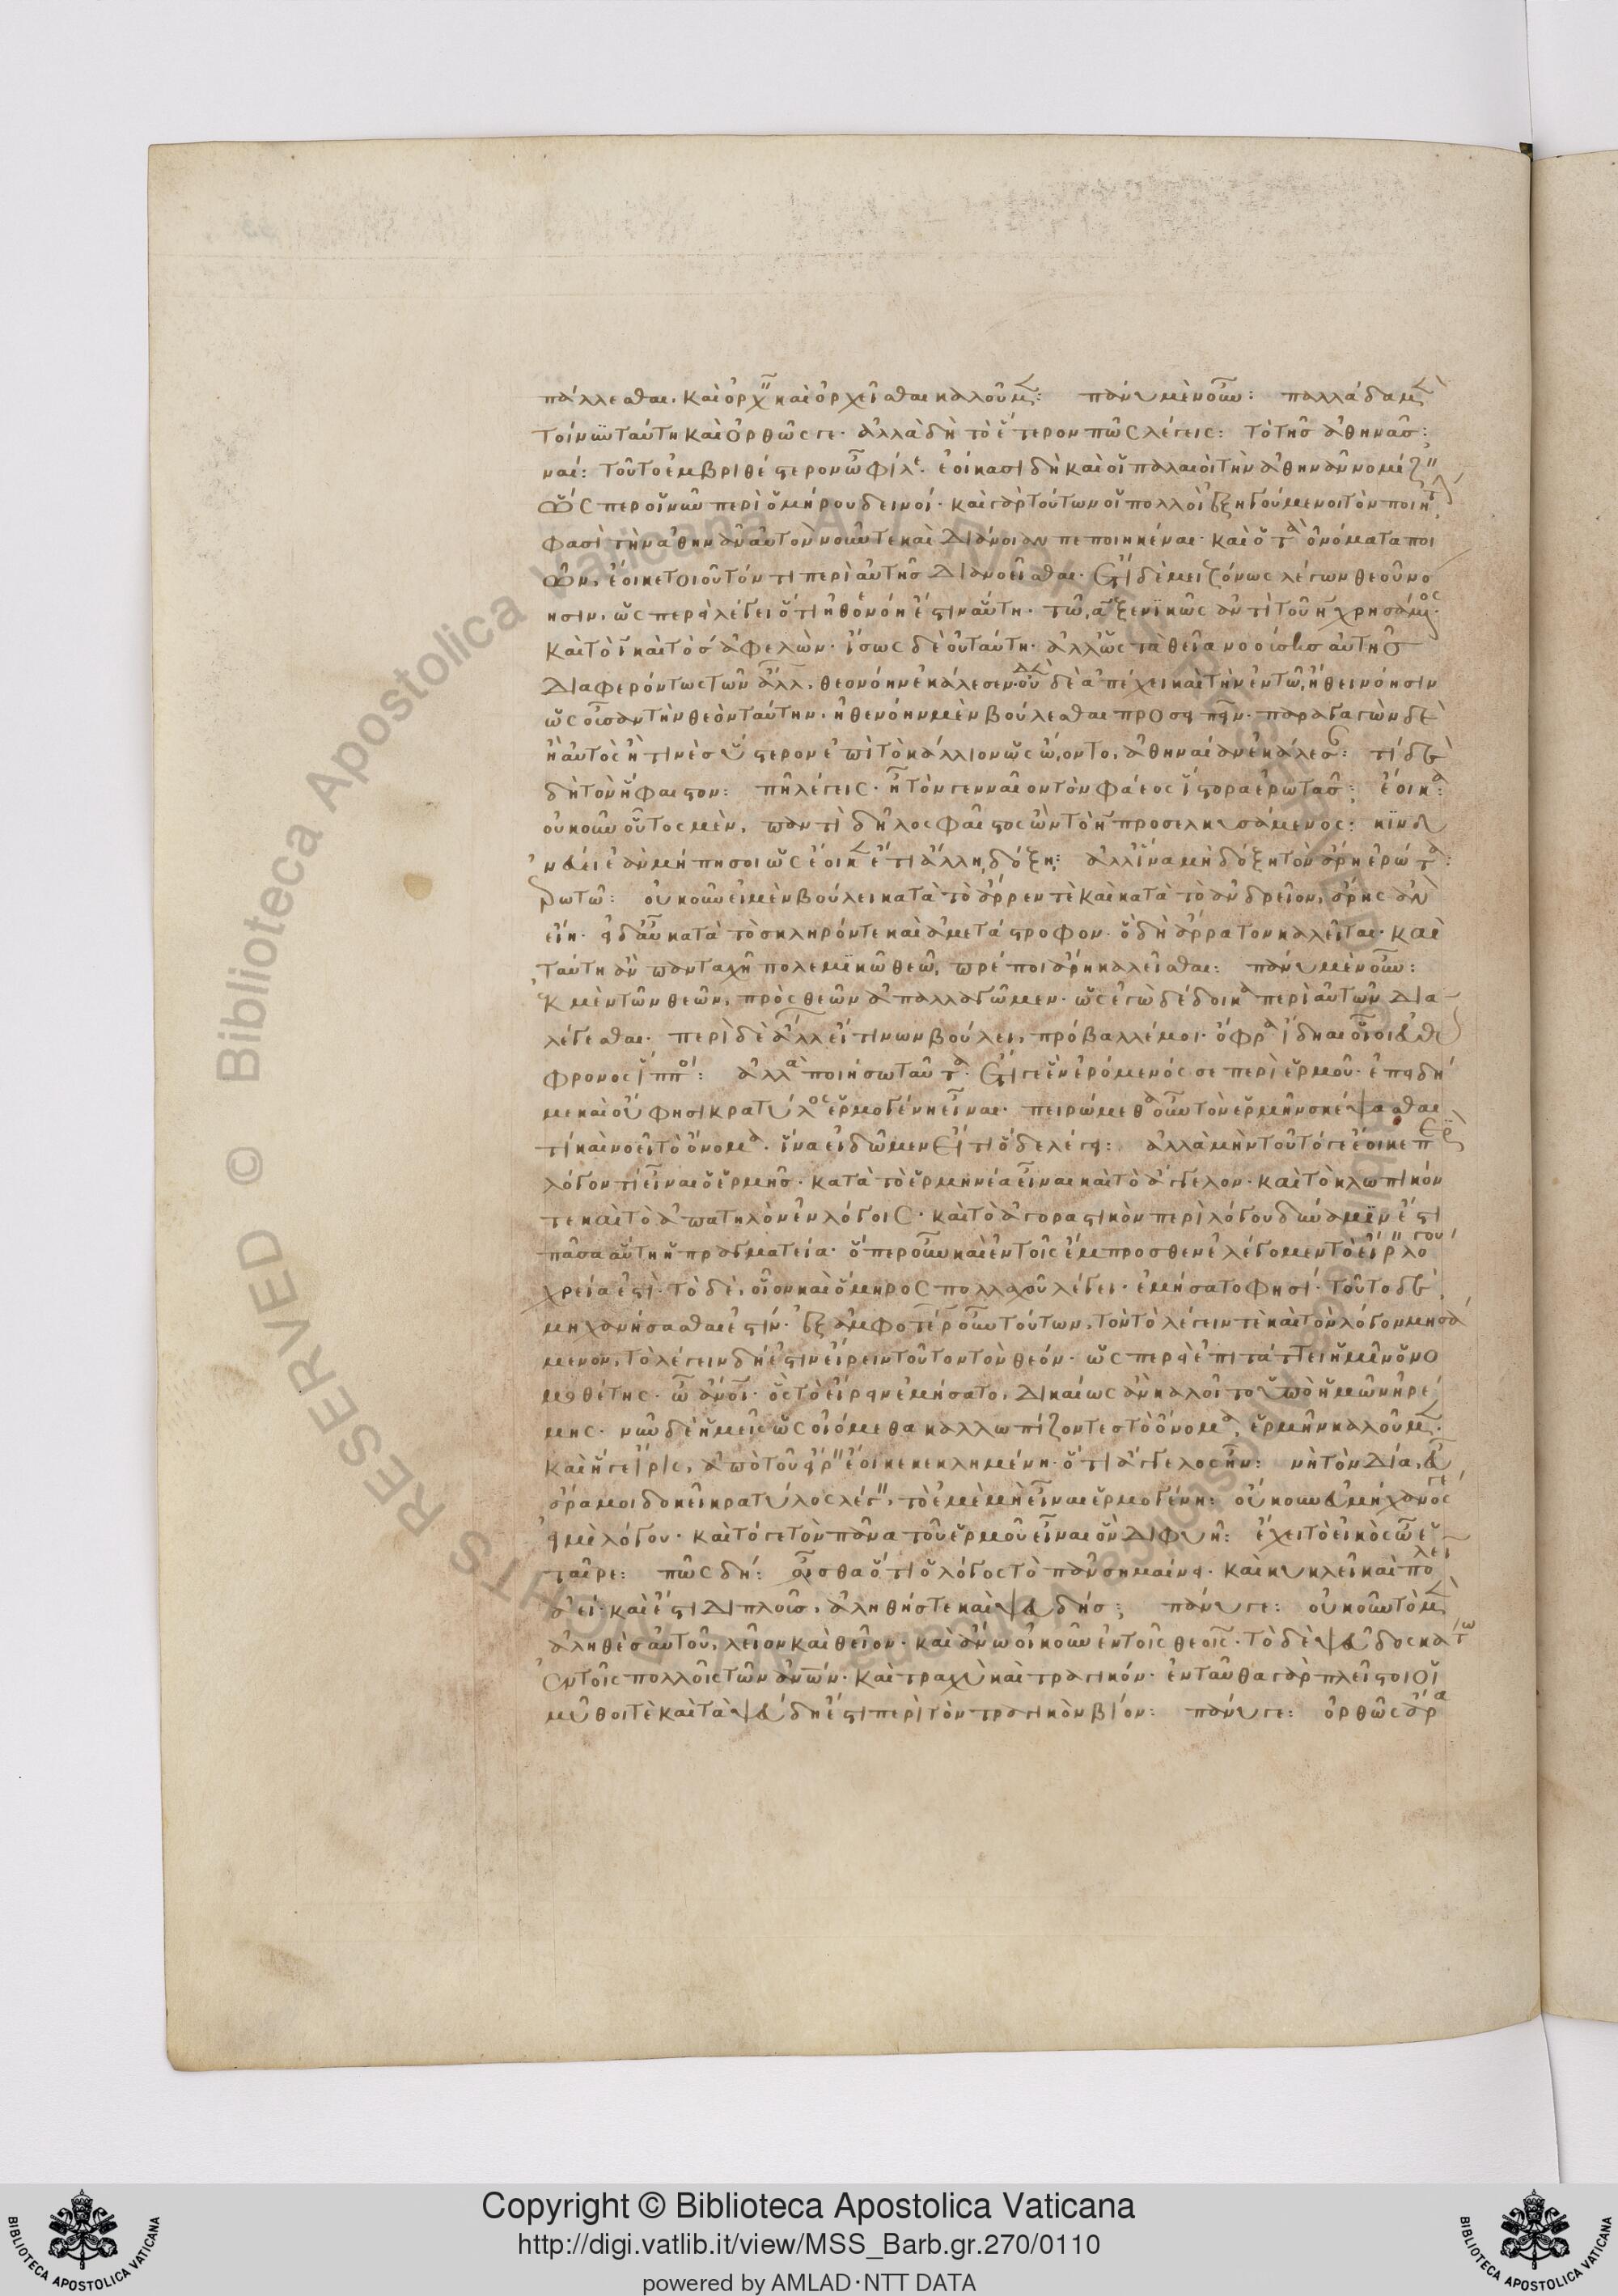 πάλλεσθαι. καὶ ὀρχ῀ καὶ ὀρχεῖσθαι καλοῦμ: πάνυ μὲν οὖν: παλλάδα μ
τοίνυν ταύτη καὶ ὀρθῶς γε. ἀλλὰ δὴ τὸ ἕτερον πῶς λέγεις: τὸ τῆς ἀθηνᾶς:
ναί: τοῦτο ἐμβριθέστερον ὦ φίλε. ἐοίκασι δὴ καὶ οἱ παλαιοὶ τὴν ἀθηνᾶν νομίζ
ὥσπερ οἱ νῦν περὶ ὁμήρου δεινοί. καὶ γὰρ τούτων οἱ πολλοὶ ἐξηγούμενοι τὸν ποιητ
φασὶ τὴν ἀθηνᾶν αὐτὸν νοῦν τε καὶ διάνοιαν πεποιηκέναι. καὶ ὁ τὰ ὀνόματα ποι
ῶν, ἔοικε τοιοῦτόν τι περὶ αὐτῆς διανοεῖσθαι. ἔτι δὲ μειζόνως λέγων θεοῦ νό
ησιν, ὥσπερεὶ λέγει ὅτι ἡ θεονόη ἐστὶν αὕτη. τῶ α ξενικῶς ἀντὶ τοῦ η χρησάμενος.
καὶ τὸ ι καὶ τὸ σ ἀφελών. ἴσως δὲ οὐ ταύτη. ἀλλ' ὡς τὰ θεῖα νοούσης αὐτῆς
διαφερόντως τῶν ἄλλ, θεονόην ἐκάλεσεν. οὐδὲν δὲ ἀπέχει καὶ τὴν ἐν τῶ ἤθει νόησιν
ὡς οὖσαν τὴν θεὸν ταύτην, ἠθενόην μὲν βούλεσθαι προσειπεῖν. παραγαγὼν δὲ
ἢ αὐτὸς ἤ τινες ὕστερον ἐπὶ τὸ κάλλιον ὡς ὤοντο, ἀθηνάαν ἐκάλεσ: τί δὲ
δὴ τὸν ἥφαιστον: πῆ λέγεις. ἦ τὸν γενναῖον τὸν φάεος ἵστορα ἐρωτᾶς; ἔοικα:
οὐκοῦν οὗτος μὲν, παντὶ δῆλος φαῖστος ὢν τὸ η προσελκυσάμενος: κινδυ
νεύει ἐὰν μή πη σοι ὡς ἔοικ ἔτι ἄλλη δόξη: ἀλλ' ἵνα μὴ δόξη τὸν ἄρη ἐρώτα:
ἐρωτῶ: οὐκοῦν εἰ μὲν βούλει κατὰ τὸ ἄρρεν τε καὶ κατὰ τὸ ἀνδρεῖον, ἄρης ἂν
εἴη. εἰ δ' αὖ κατὰ τὸ σκληρόν τε καὶ ἀμετάστροφον. ὃ δὴ ἄρρατον καλεῖται. καὶ
ταύτη ἂν πανταχῆ πολεμικῶ θεῶ, πρέποι ἄρη καλεῖσθαι: πάνυ μὲν οὖν:
ἐκ μὲν τῶν θεῶν, πρὸς θεῶν ἀπαλλαγῶμεν. ὡς ἐγὼ δέδοικα περὶ αὐτῶν δια
λέγεσθαι. περὶ δὲ ἄλλ εἵ τινων βούλει, πρόβαλλέ μοι. ὄφρα ἴδηαι οἷοι εὐθύ
φρονος ἵπποι: ἀλλὰ ποιήσω ταῦτα. ἔτι γε ἓν ἐρόμενός σε περὶ ἑρμοῦ. ἐπειδή
με καὶ οὔ φησι κρατύλος ἑρμογένη εἶναι. πειρώμεθα οὖν τὸν ἑρμῆν σκέψασθαι
τί καὶ νοεῖ τὸ ὄνομα. ἵνα εἰδῶμεν εἴ τι ὅδε λέγει: ἀλλὰ μὴν τοῦτό γε ἔοικε περὶ
λόγον τι εἶναι ὁ ἑρμῆς. κατὰ τὸ ἑρμηνέα εἶναι καὶ τὸ ἄγγελον. καὶ τὸ κλωπικόν
τε καὶ τὸ ἀπατηλὸν ἐν λόγοις. καὶ τὸ ἀγοραστικὸν περὶ λόγου δύναμίν ἐστι
πᾶσα αὕτη ἡ πραγματεία. ὅπερ οὖν καὶ ἐν τοῖς ἔμπροσθεν ἐλέγομεν τὸ εἴρ λόγου
χρεία ἐστί. τὸ δὲ, οἷον καὶ ὅμηρος πολλαχοῦ λέγει. ἐμήσατο φησί. τοῦτο δὲ
μηχανήσασθαι ἐστίν. ἐξ ἀμφοτέρ οὖν τούτων, τὸν τὸ λέγειν τε καὶ τὸν λόγον μησά
μενον, τὸ λέγειν δή ἐστιν εἴρειν τοῦτον τὸν θεόν. ὡσπερεὶ ἐπιτάττει ἡμῖν ὁ νο
μοθέτης. ὦ ἄνοι. ὃς τὸ εἴρειν ἐμήσατο, δικαίως ἂν καλοῖτο ὑπὸ ἡμῶν εἰρέ
μης. νῦν δὲ ἡμεῖς ὡς οἰόμεθα καλλωπίζοντες τὸ ὄνομα, ἑρμῆν καλοῦμ.
καὶ ἥ γε ἶρις, ἀπὸ τοῦ εἴρ ἔοικε κεκλημένη. ὅτι ἄγγελος ἦν: νὴ τὸν δία, εὖ
ἄρα μοι δοκεῖ κρατύλος λέγ, τὸ ἐμὲ μὴ εἶναι ἑρμογένη: οὔκουν εὐμήχανός γε
εἰμὶ λόγου. καὶ τό γε τὸν πᾶνα τοῦ ἑρμοῦ εἶναι ὃν διφυῆ: ἔχει τὸ εἰκὸς ὦ ἑ
ταῖρε: πῶς δή: οἶσθα ὅτι ὁ λόγος τὸ πᾶν σημαίνει. καὶ κυκλεῖ καὶ πολεῖ
ἀεί. καὶ ἔστι διπλοῦς, ἀληθής τε καὶ ψευδής; πάνυ γε: οὐκοῦν τὸ μ
ἀληθὲς αὐτοῦ, λεῖον καὶ θεῖον. καὶ ἄνω οἰκοῦν ἐν τοῖς θεοῖς. τὸ δὲ ψεῦδος κάτω
ἐν τοῖς πολλοῖς τῶν ἀνων. καὶ τραχὺ καὶ τραγικόν. ἐνταῦθα γὰρ πλεῖστοι οἱ
μῦθοί τε καὶ τὰ ψευδῆ ἐστι περὶ τὸν τραγικὸν βίον: πάνυ γε: ὀρθῶς ἄρα
RESERVED © Biblioteca Apostolica Vaticana
Copyright © Biblioteca Apostolica Vaticana
http://digi.vatlib.it/view/MSS_Barb.gr.270/0110
powered by AMLAD·NTT DATA
BIBLIOTECA APOSTOLICA VATICANA
BIBLIOTECA APOSTOLICA VATICANA